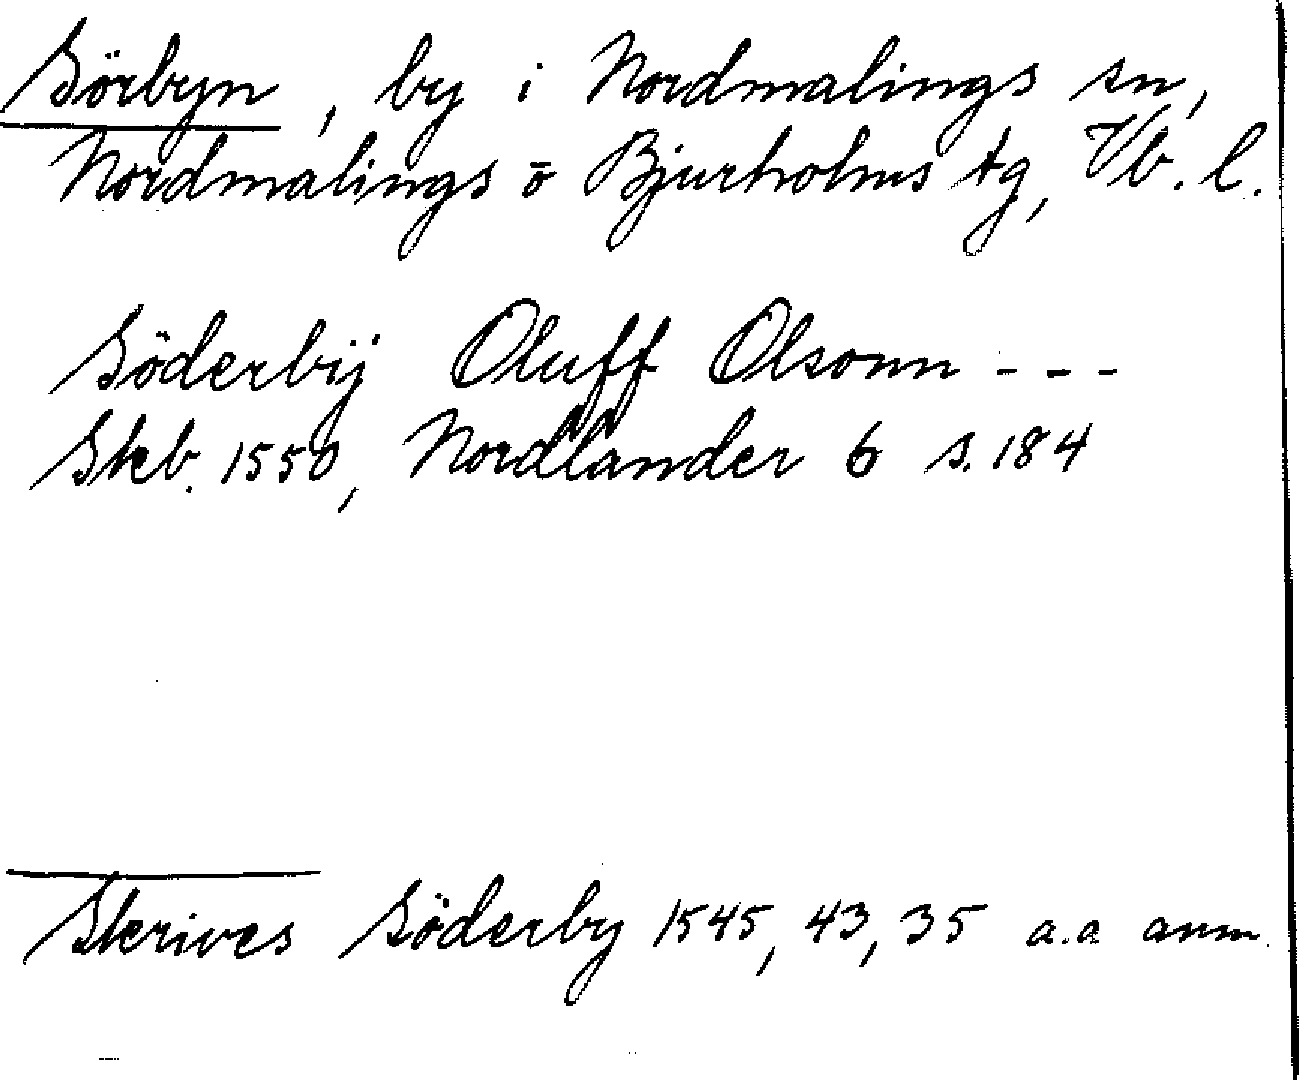 Sörbyn, by i Nordmalings sn,
Nordmalings o Bjurholms tg, Vb. l.
Söderbÿ Oluff Olsonn - - -
Skb. 1550, Nordlander 6 s. 184
Skrives Söderby 1545, 43, 35 a.a anm.